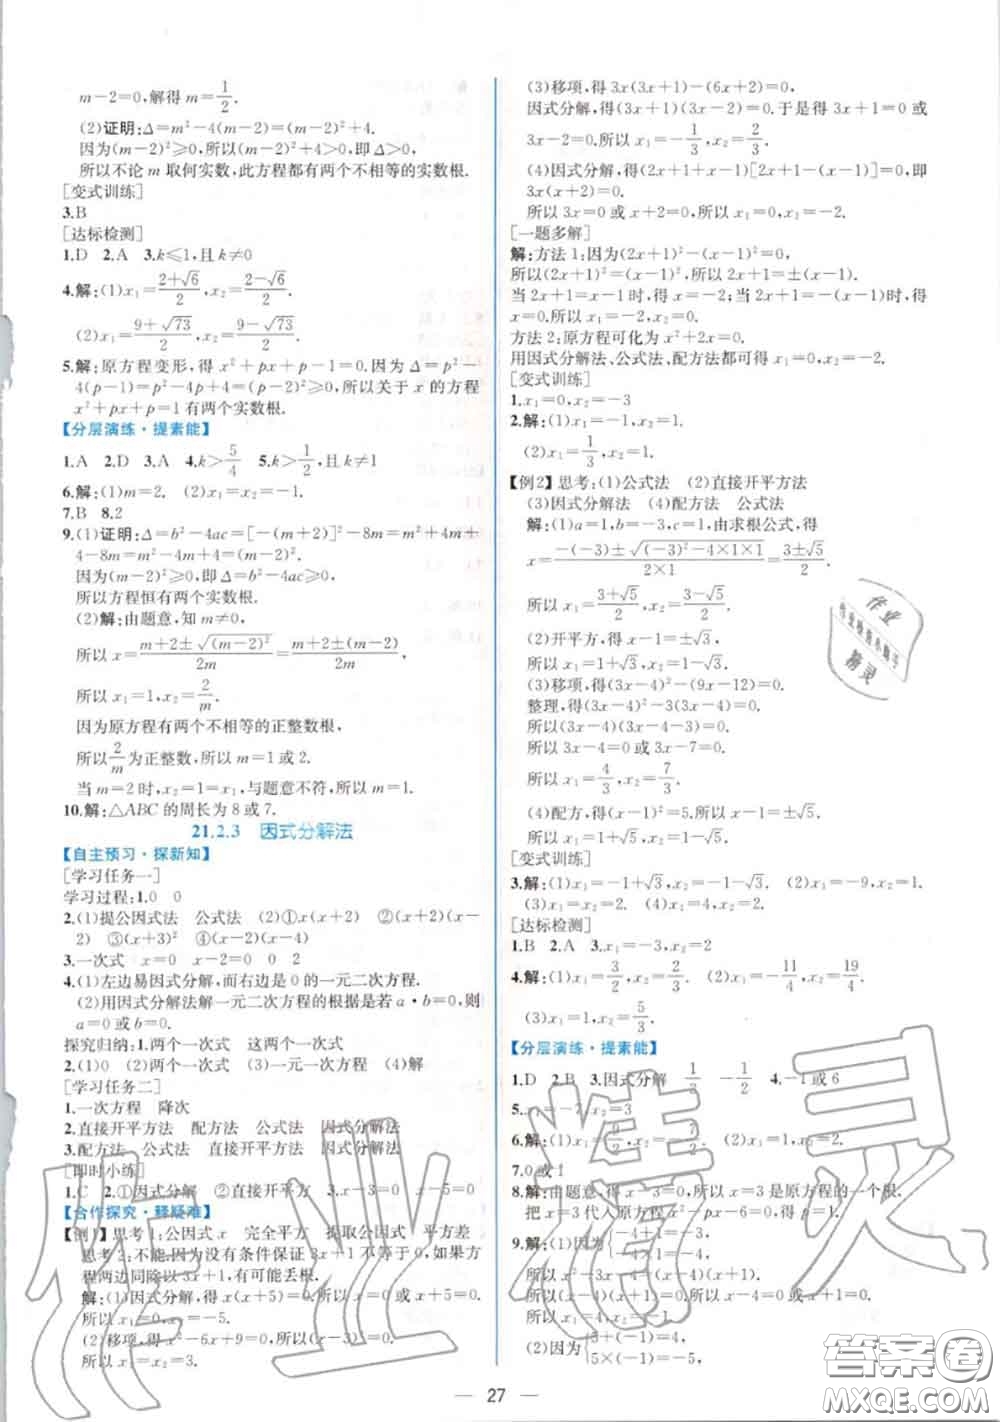 m－2＝0,解得 m＝1/2.
(2)证明:Δ＝m²－4(m－2)＝(m－2)²＋4.
因为(m－2)²⩾0,所以(m－2)²＋4>0,即 Δ>0,
所以不论 m 取何实数,此方程都有两个不相等的实数根.
[变式训练]
3.B
[达标检测]
1.D 2.A 3.k⩽1,且 k≠0
4.解:(1)x₁＝(2＋√6)/2,x₂＝(2－√6)/2.
(2)x₁＝(9＋√73)/2,x₂＝(9－√73)/2.
5.解:原方程变形,得 x²＋px＋p－1＝0.因为 Δ＝p²－
4(p－1)＝p²－4p＋4＝(p－2)²⩾0,所以关于 x 的方程
x²＋px＋p＝1 有两个实数根.
【分层演练·提素能】
1.A 2.D 3.A 4.k>5/4 5.k>1/2,且 k≠1
6.解:(1)m＝2. (2)x₁＝0,x₂＝－1.
7.B 8.2
9.(1)证明:Δ＝b²－4ac＝[－(m＋2)]²－8m＝m²＋4m＋
4－8m＝m²－4m＋4＝(m－2)².
因为(m－2)²⩾0,即 Δ＝b²－4ac⩾0,
所以方程恒有两个实数根.
(2)解:由题意,知 m≠0,
所以 x＝(m＋2±√(m－2)²)/2m＝(m＋2±(m－2))/2m.
所以 x₁＝1,x₂＝2/m.
因为原方程有两个不相等的正整数根,
所以2/m为正整数,所以 m＝1 或 2.
当 m＝2 时,x₂＝1＝x₁,与题意不符,所以 m＝1.
10.解:△ABC 的周长为 8 或 7.
21.2.3 因式分解法
【自主预习·探新知】
[学习任务一]
学习过程:1.0 0
2.(1)提公因式法 公式法 (2)①x(x＋2) ②(x＋2)(x－
2) ③(x＋3)² ④(x－2)(x－4)
3.一次式 x 0 x－2 0 0 2
4.(1)左边易因式分解,而右边是 0 的一元二次方程.
(2)用因式分解法解一元二次方程的根据是若 a·b＝0,则
a＝0 或 b＝0.
探究归纳:1.两个一次式 这两个一次式
2.(1)0 (2)两个一次式 (3)一元一次方程 (4)解
[学习任务二]
1.一次方程 降次
2.直接开平方法 配方法 公式法 因式分解法
3.配方法 公式法 直接开平方法 因式分解法
[即时小练]
1.C 2.①因式分解 ②直接开平方 3.x－3＝0 x－5＝0
【合作探究·释疑难】
【例1】思考1:公因式 x 完全平方 提取公因式 平方差
思考 2:不能,因为没有条件保证 3x＋1 不等于 0,如果方
程两边同除以 3x＋1,有可能丢根.
解:(1)因式分解,得 x(x＋5)＝0,所以 x＝0 或 x＋5＝0.
所以 x₁＝0,x₂＝－5.
(2)移项,得 x²－6x＋9＝0,所以(x－3)²＝0.
所以 x₁＝x₂＝3.
(3)移项,得 3x(3x＋1)－(6x＋2)＝0.
因式分解,得(3x＋1)(3x－2)＝0.于是得 3x＋1＝0 或
3x－2＝0.所以 x₁＝－1/3,x₂＝2/3.
(4)因式分解,得(2x＋1＋x－1)[2x＋1－(x－1)]＝0,即
3x(x＋2)＝0.
所以 3x＝0 或 x＋2＝0,所以 x₁＝0,x₂＝－2.
[一题多解]
解:方法 1:因为(2x＋1)²－(x－1)²＝0,
所以(2x＋1)²＝(x－1)²,所以 2x＋1＝±(x－1).
当 2x＋1＝x－1 时,得 x＝－2;当 2x＋1＝－x＋1 时,得
x＝0.所以 x₁＝－2,x₂＝0.
方法 2:原方程可化为 x²＋2x＝0.
用因式分解法、公式法、配方法都可得 x₁＝0,x₂＝－2.
[变式训练]
1.x₁＝0,x₂＝－3
2.解:(1)x₁＝－1/2,x₂＝1.
(2)x₁＝1/3,x₂＝1.
【例2】思考:(1)公式法 (2)直接开平方法
(3)因式分解法 (4)配方法 公式法
解:(1)a＝1,b＝－3,c＝1,由求根公式,得
x＝(－(－3)±√((－3)²－4×1×1))/(2×1)＝(3±√5)/2.
所以 x₁＝(3＋√5)/2,x₂＝(3－√5)/2.
(2)开平方,得 x－1＝±√3,
所以 x₁＝1＋√3,x₂＝1－√3.
(3)移项,得(3x－4)²－(9x－12)＝0.
整理,得(3x－4)²－3(3x－4)＝0.
所以(3x－4)(3x－4－3)＝0.
所以 3x－4＝0 或 3x－7＝0.
所以 x₁＝4/3,x₂＝7/3.
(4)配方,得(x－1)²＝5.所以 x－1＝±√5.
所以 x₁＝1＋√5,x₂＝1－√5.
[变式训练]
3.解:(1)x₁＝－1＋√3,x₂＝－1－√3. (2)x₁＝9,x₂＝－1.
(3)x₁＝x₂＝2. (4)x₁＝0,x₂＝4.
[达标检测]
1.B 2.A 3.x₁＝－3,x₂＝2
4.解:(1)x₁＝3/2,x₂＝－3/2. (2)x₁＝－11/4,x₂＝19/4.
(3)x₁＝1,x₂＝5/3.
【分层演练·提素能】
1.D 2.B 3.因式分解 1/3 －1/2 4.－1 或 6
7.0 或 1
8.解:由题意,得 x＝3 是原方程的一个根.
9.解:(1)因为
27
作业精灵
答案圈
MXQE.COM